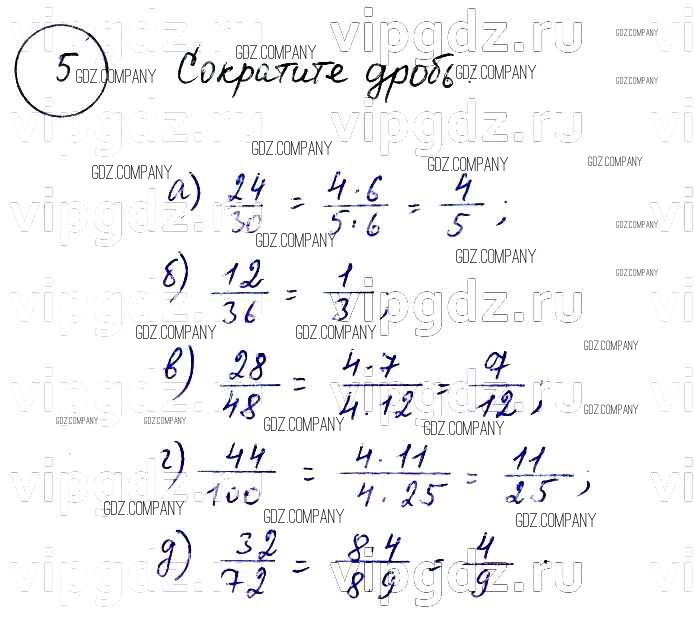 5 Сократите дробь.
а) 24/30 = 4·6/5·6 = 4/5;
б) 12/36 = 1/3;
в) 28/48 = 4·7/4·12 = 7/12;
г) 44/100 = 4·11/4·25 = 11/25;
д) 32/72 = 8·4/8 9 = 4/9.
vipgdz.ru
GDZ.COMPANY